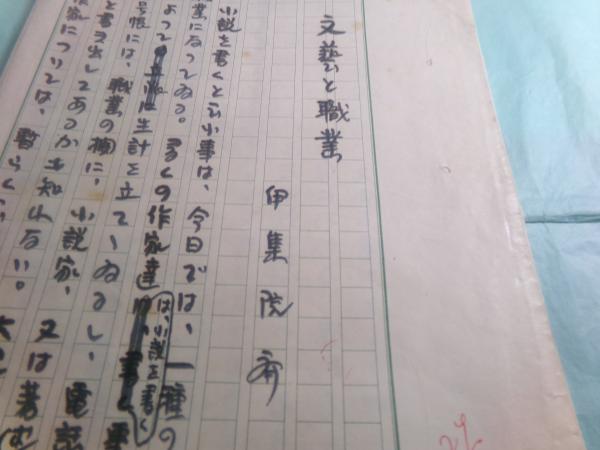 文藝と職業
伊集院斉
小説を書くと云ふ事は、今日では、一種の
業になつてゐる。多くの作家達は、小説を書く
よつて生計を立てゝゐるし、電話
号帳には、職業の欄に、小説家、又は著
と書き出してあるかも知れない。
家については、暫らく